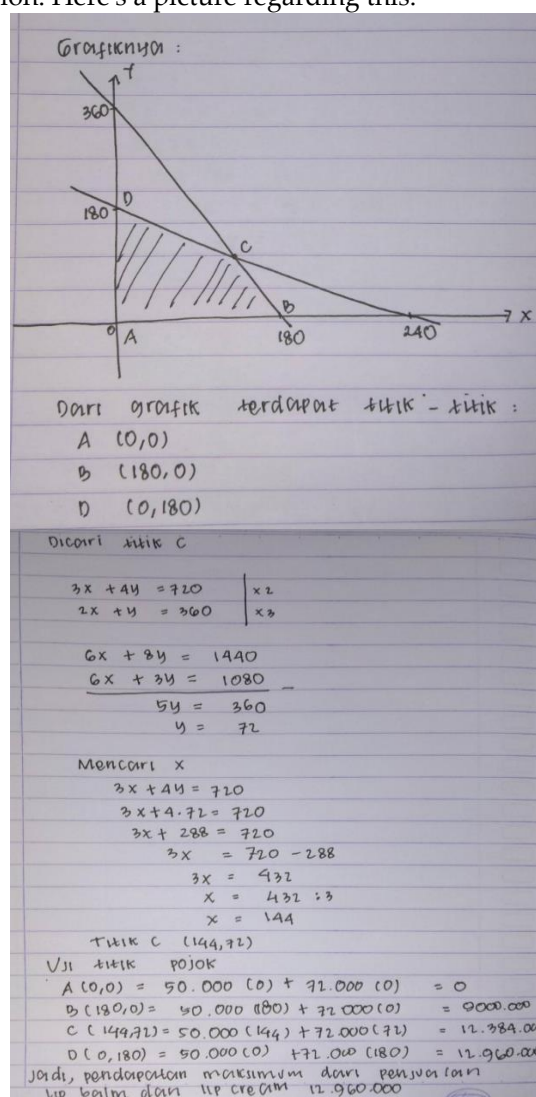 ion. Here's a picture regarding this.
Grafiknya :
Y
360
D
180
C
B
X
0 A 180 240
Dari grafik terdapat titik - titik :
A (0,0)
B (180,0)
D (0,180)
Dicari titik C
3x + 4y = 720 | x 2
2x + y = 360 | x 3
6x + 8y = 1440
6x + 3y = 1080 -
5y = 360
y = 72
Mencari x
3x + 4y = 720
3x + 4.72 = 720
3x + 288 = 720
3x = 720 - 288
3x = 432
x = 432 : 3
x = 144
Titik C (144,72)
Uji titik pojok
A (0,0) = 50.000 (0) + 72.000 (0) = 0
B (180,0) = 50.000 (180) + 72 000 (0) = 9000.000
C (144,72) = 50.000 (144) + 72.000 (72) = 12.384.00
D (0,180) = 50.000 (0) + 72.000 (180) = 12.960.00
Jadi, pendapatan maksimum dari penjualan
lip balm dan lip cream 12.960.000